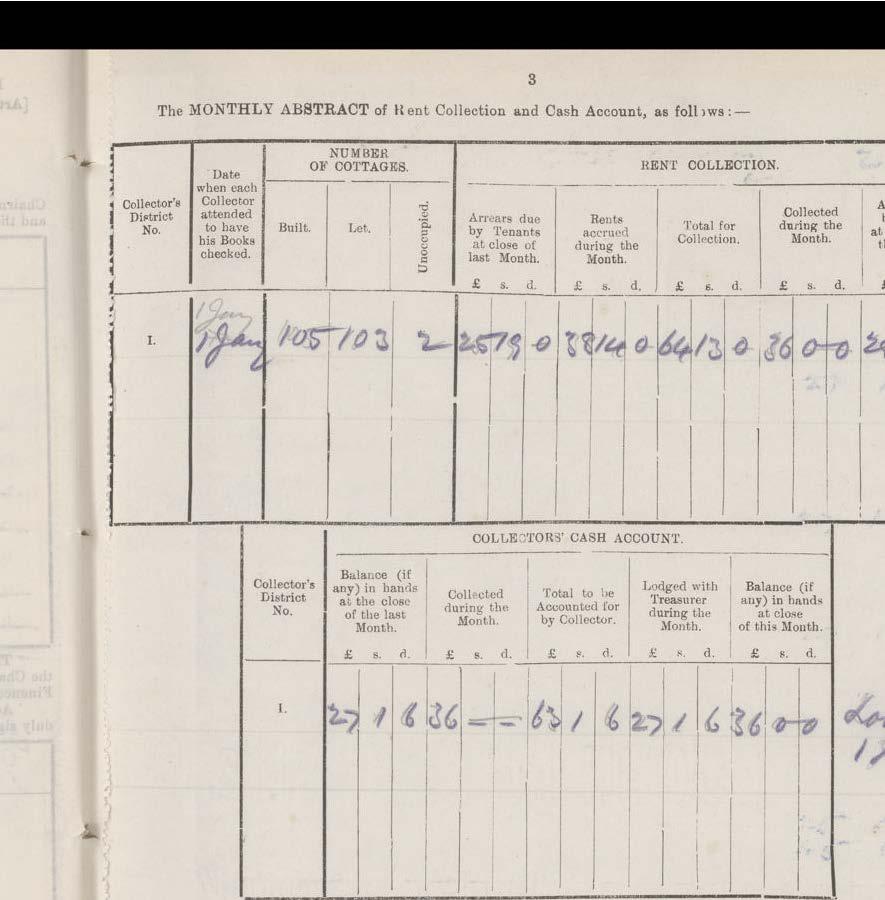 3
The MONTHLY ABSTRACT of Rent Collection and Cash Account, as follows:—
Collector's District No.
Date when each Collector attended to have his Books checked.
NUMBER OF COTTAGES.
Built.
Let.
Unoccupied.
RENT COLLECTION.
Arrears due by Tenants at close of last Month.
Rents accrued during the Month.
Total for Collection.
Collected during the Month.
£ s. d. £ s. d. £ s. d. £ s. d.
1 Jany
I. 1 Jany 105 103 2 25 19 0 38 14 0 64 13 0 36 0 0
COLLECTORS' CASH ACCOUNT.
Collector's District No.
Balance (if any) in hands at the close of the last Month.
Collected during the Month.
Total to be Accounted for by Collector.
Lodged with Treasurer during the Month.
Balance (if any) in hands at close of this Month.
£ s. d. £ s. d. £ s. d. £ s. d. £ s. d.
I. 27 1 6 36 — — 63 1 6 27 1 6 36 0 0